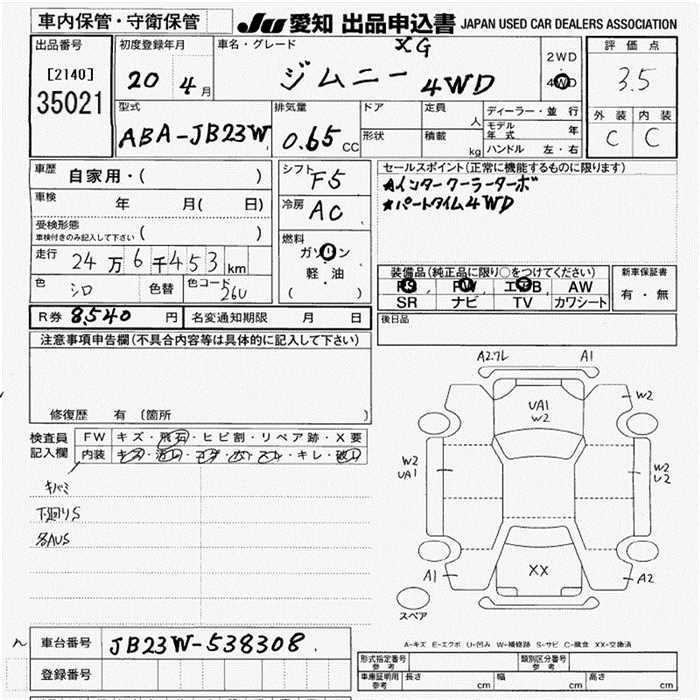 車内保管・守衛保管 JU 愛知 出品申込書 JAPAN USED CAR DEALERS ASSOCIATION
出品番号 初度登録年月 車名・グレード XG 2WD 評価点
[2140] 20 年 4 月 ジムニー 4WD 4WD 3.5
35021
型式 排気量 ドア 定員 人 ディーラー・並行 外装 内装
ABA-JB23W 0.65 CC 形状 積載 kg モデル年式 年 C C
ハンドル 左・右
車歴 自家用・( ) シフト F5 セールスポイント(正常に機能するものに限ります)
車検 年 月( 日) 冷房 AC ★インタークーラーターボ
★パートタイム4WD
受検形態 車検付きのみ記入して下さい ( )
燃料 ガソリン
走行 24万6千453km 軽・油
( )
色 シロ 色替 色コード 26U
装備品(純正品に限り○をつけてください) 新車保証書
PS PW エアB AW 有・無
SR ナビ TV カワシート
R券 8,540 円 名変通知期限 月 日 後日品
注意事項申告欄(不具合内容等は具体的に記入して下さい)
修復歴 有 (箇所 )
検査員記入欄 FW キズ・飛石・ヒビ割・リペア跡・X要
内装 キズ・汚レ・コゲ・穴・スレ・キレ・破レ
キバミ
下廻りS
各AUS
A2.7L A1
UA1
W2
W2
W2
UA1
W2
U2
A1 XX A2
スペア
A-キズ E-エクボ U-凹み W-補修跡 S-サビ C-腐食 XX-交換済
車台番号 JB23W-538308
登録番号
形式指定番号 参考 類別区分番号 参考
車庫証明用 参考 長さ cm 幅 cm 高さ cm